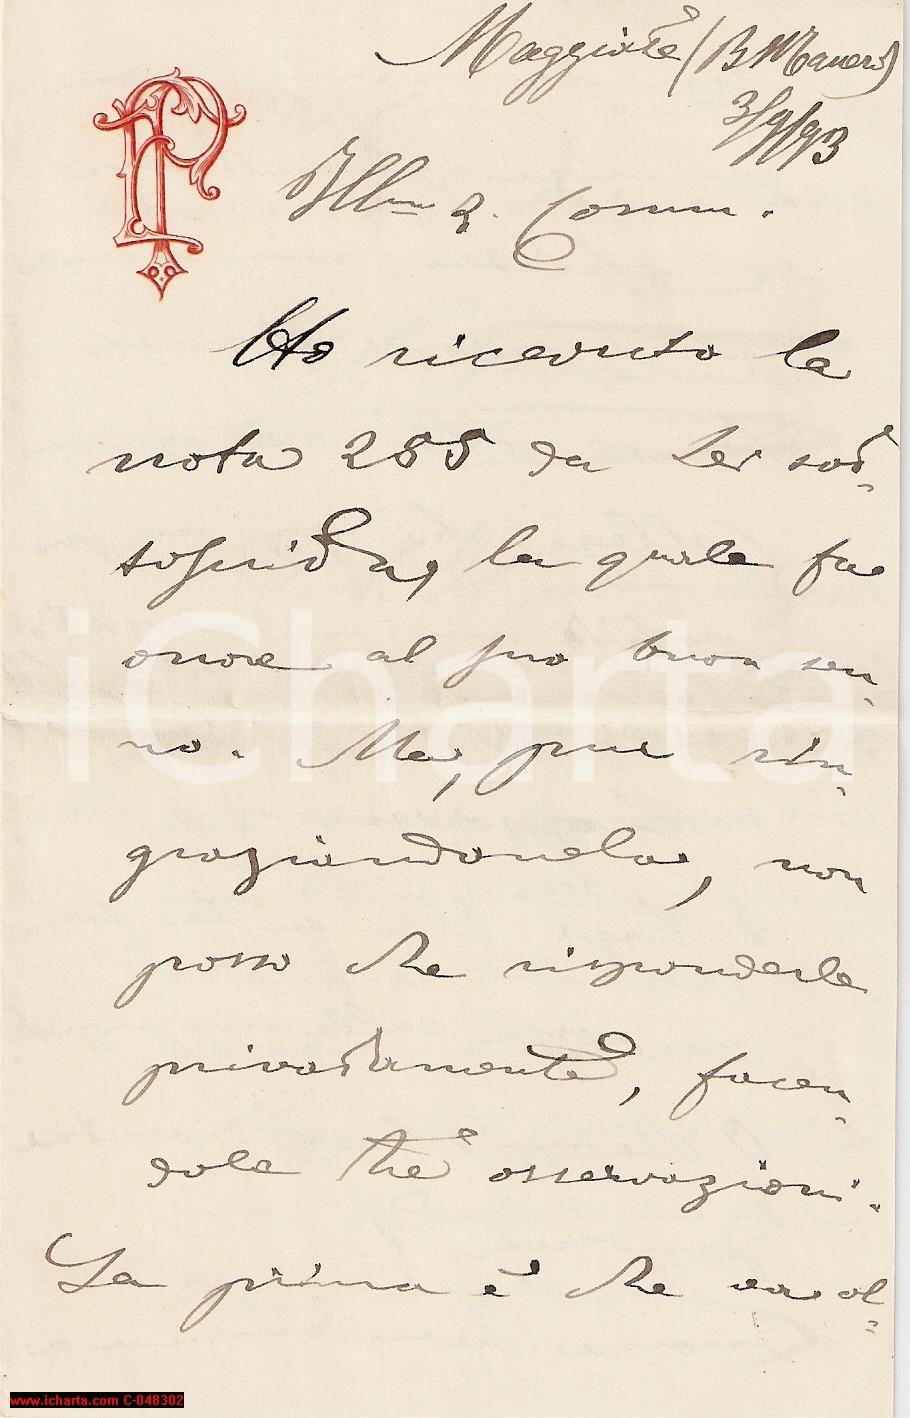 Maggiate (B
3/9/93
Illmo Comm.
Ho ricevuto la
nota 255 da Lei sot=
toscritta, la quale fa
onore al suo buon sen=
no. Ma, pur rin=
graziandonela, non
posso che risponderle
privatamente, facen=
dole tre osservazioni.
La prima è che ad ol=
iCharta
www.icharta.com C-048302